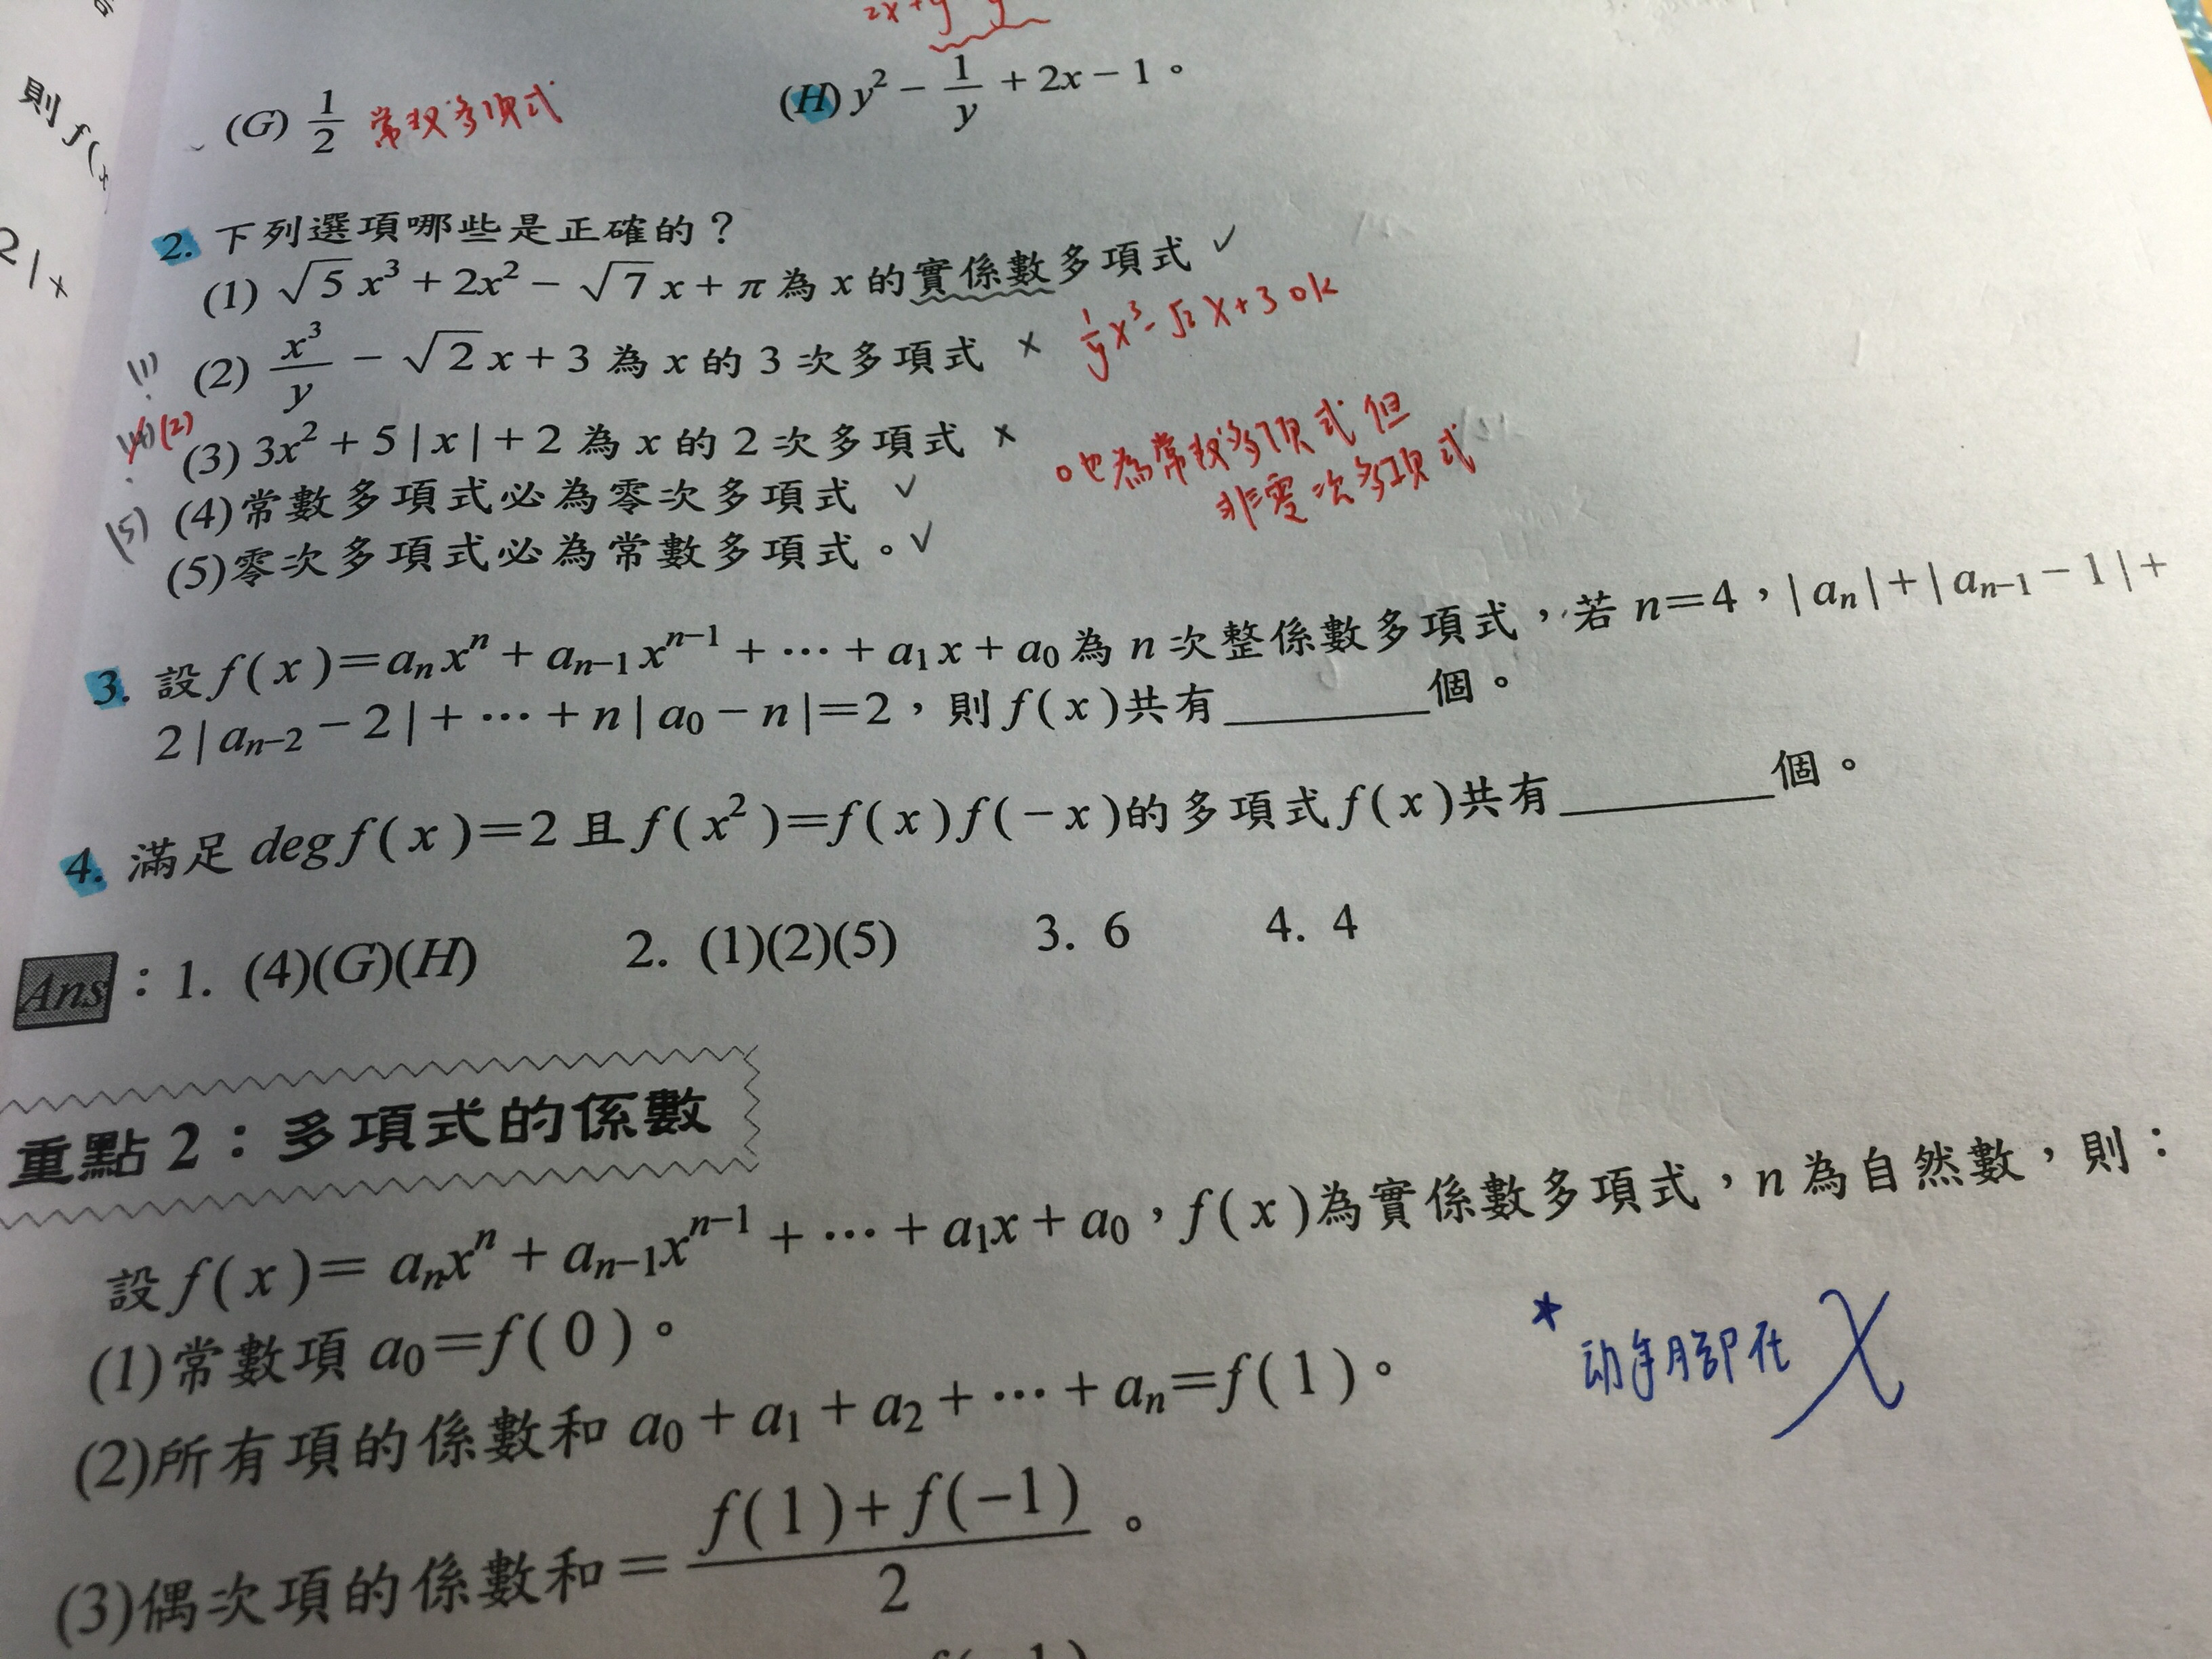 2x+y y
(G) 1/2 常数多項式 (H) y² − 1/y + 2x − 1。
則 f(x
2. 下列選項哪些是正確的？
(1) √5 x³ + 2x² − √7 x + π 為 x 的實係數多項式 ✓
(1) (2) x³/y − √2 x + 3 為 x 的 3 次多項式 × 1/y x³ - √2 x + 3 ok
(2) (3) 3x² + 5 | x | + 2 為 x 的 2 次多項式 × 0也為常数多項式但
非零次多項式
(5) (4)常數多項式必為零次多項式 ✓
(5)零次多項式必為常數多項式。✓
3. 設 f ( x )＝aₙxⁿ + aₙ₋₁xⁿ⁻¹ + ⋯ + a₁x + a₀ 為 n 次整係數多項式，若 n＝4，| aₙ | + | aₙ₋₁ − 1 | +
2 | aₙ₋₂ − 2 | + ⋯ + n | a₀ − n |＝2，則 f ( x ) 共有________個。
4. 滿足 deg f ( x )＝2 且 f ( x² )＝f ( x ) f ( − x )的多項式 f ( x )共有________個。
Ans：1. (4)(G)(H) 2. (1)(2)(5) 3. 6 4. 4
重點 2：多項式的係數
設 f ( x )＝ aₙxⁿ + aₙ₋₁xⁿ⁻¹ + ⋯ + a₁x + a₀，f ( x )為實係數多項式，n 為自然數，則：
(1)常數項 a₀＝f ( 0 )。
★ 动手腳在 X
(2)所有項的係數和 a₀ + a₁ + a₂ + ⋯ + aₙ＝f ( 1 )。
(3)偶次項的係數和＝ f ( 1 ) + f ( −1 ) / 2 。